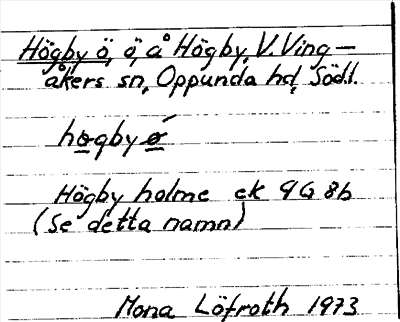 Högby ö, ö, å Högby, V. Ving-
åkers sn, Oppunda hd, Södl.
høgby ǿ
Högby holme ek 9G 8b
(Se detta namn)
Mona Löfroth 1973